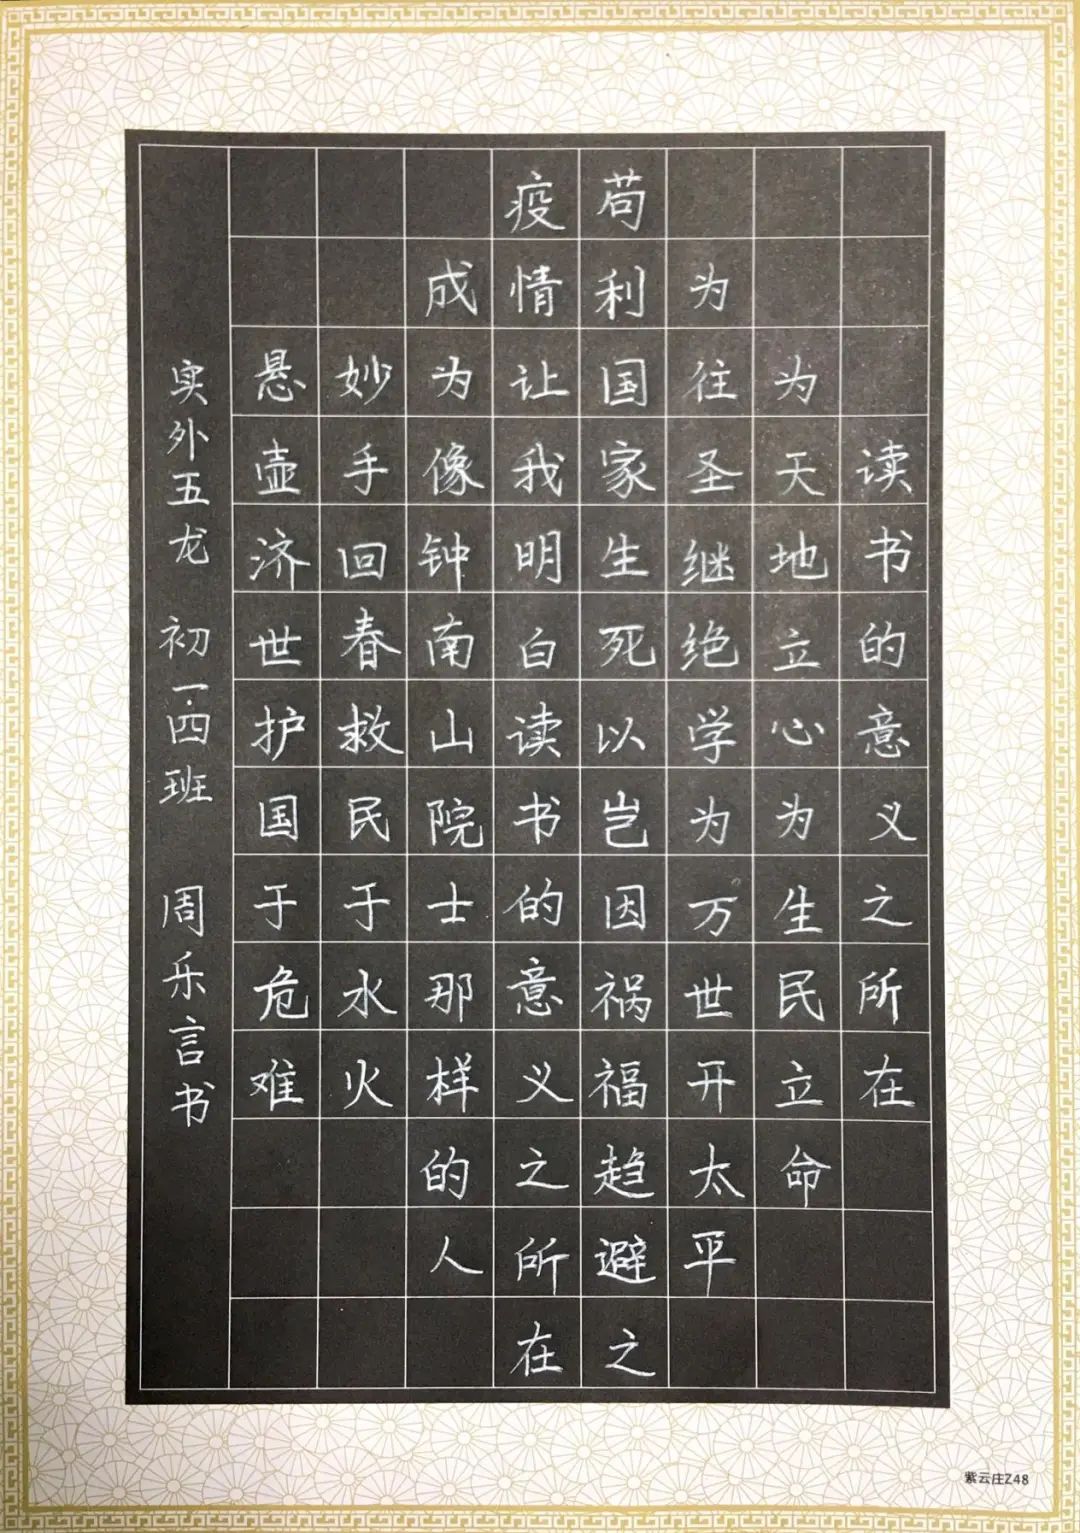 读书的意义之所在
为天地立心为生民立命
为往圣继绝学为万世开太平
苟利国家生死以岂因祸福趋避之
疫情让我明白读书的意义之所在
成为像钟南山院士那样的人
妙手回春救民于水火
悬壶济世护国于危难
实外五龙 初一·四班 周乐言书
紫云庄Z48